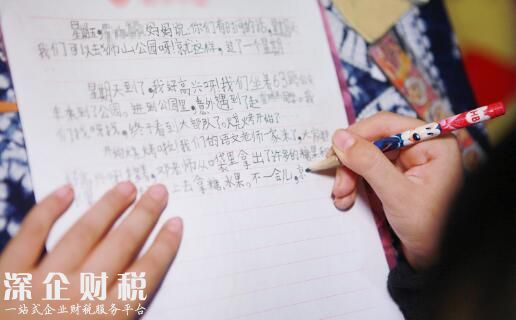 星期五,妈妈说,你们有时间的话,星期天
我们可以去山公园呀!就这样,过了一个星期
星期天到了,我好高兴呀!我们坐着63路公交
车来到了公园,进到公园里,意外遇到了赵
们找呀找,终于看到大部队了。烧烤开始了
开始烧烤啦!我们的语文老师一家来了,大家都
老师从口袋里拿出了许多的糖果
上去拿糖、水果。不一会儿,
HB
深企财税
一站式企业财税服务平台